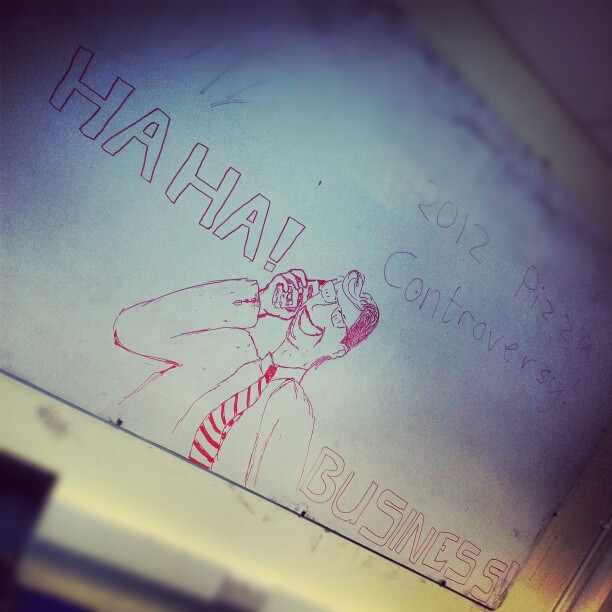 HA HA!
2012 Pizza
Controversy!
BUSINESS!